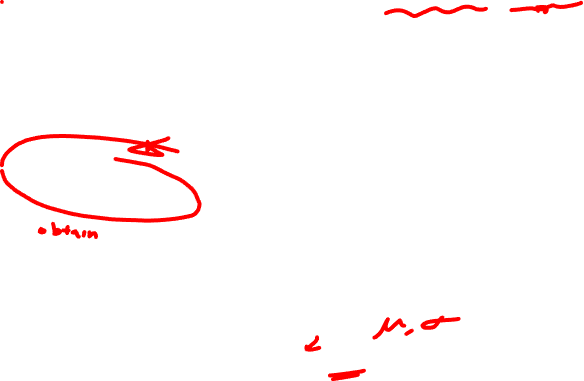 obtain
μ, σ